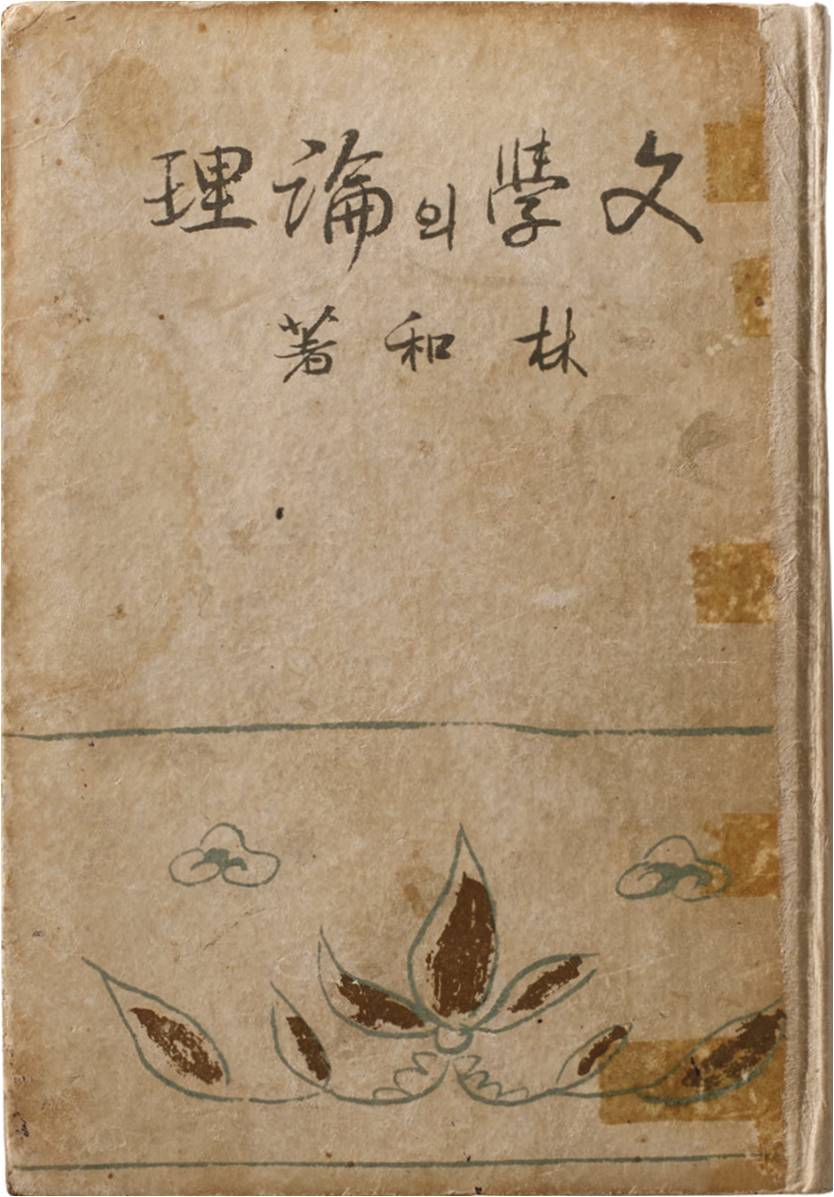 文學의論理
林和著